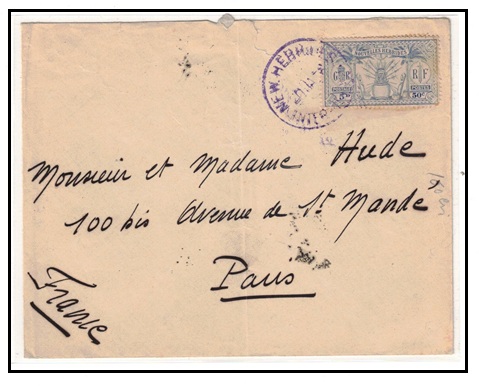 NEW HEBRIDES
NOUVELLES HEBRIDES
G R
R F
5d
50c
Monsieur et Madame Hude
100 bis Avenue de St Mandé
Paris
France